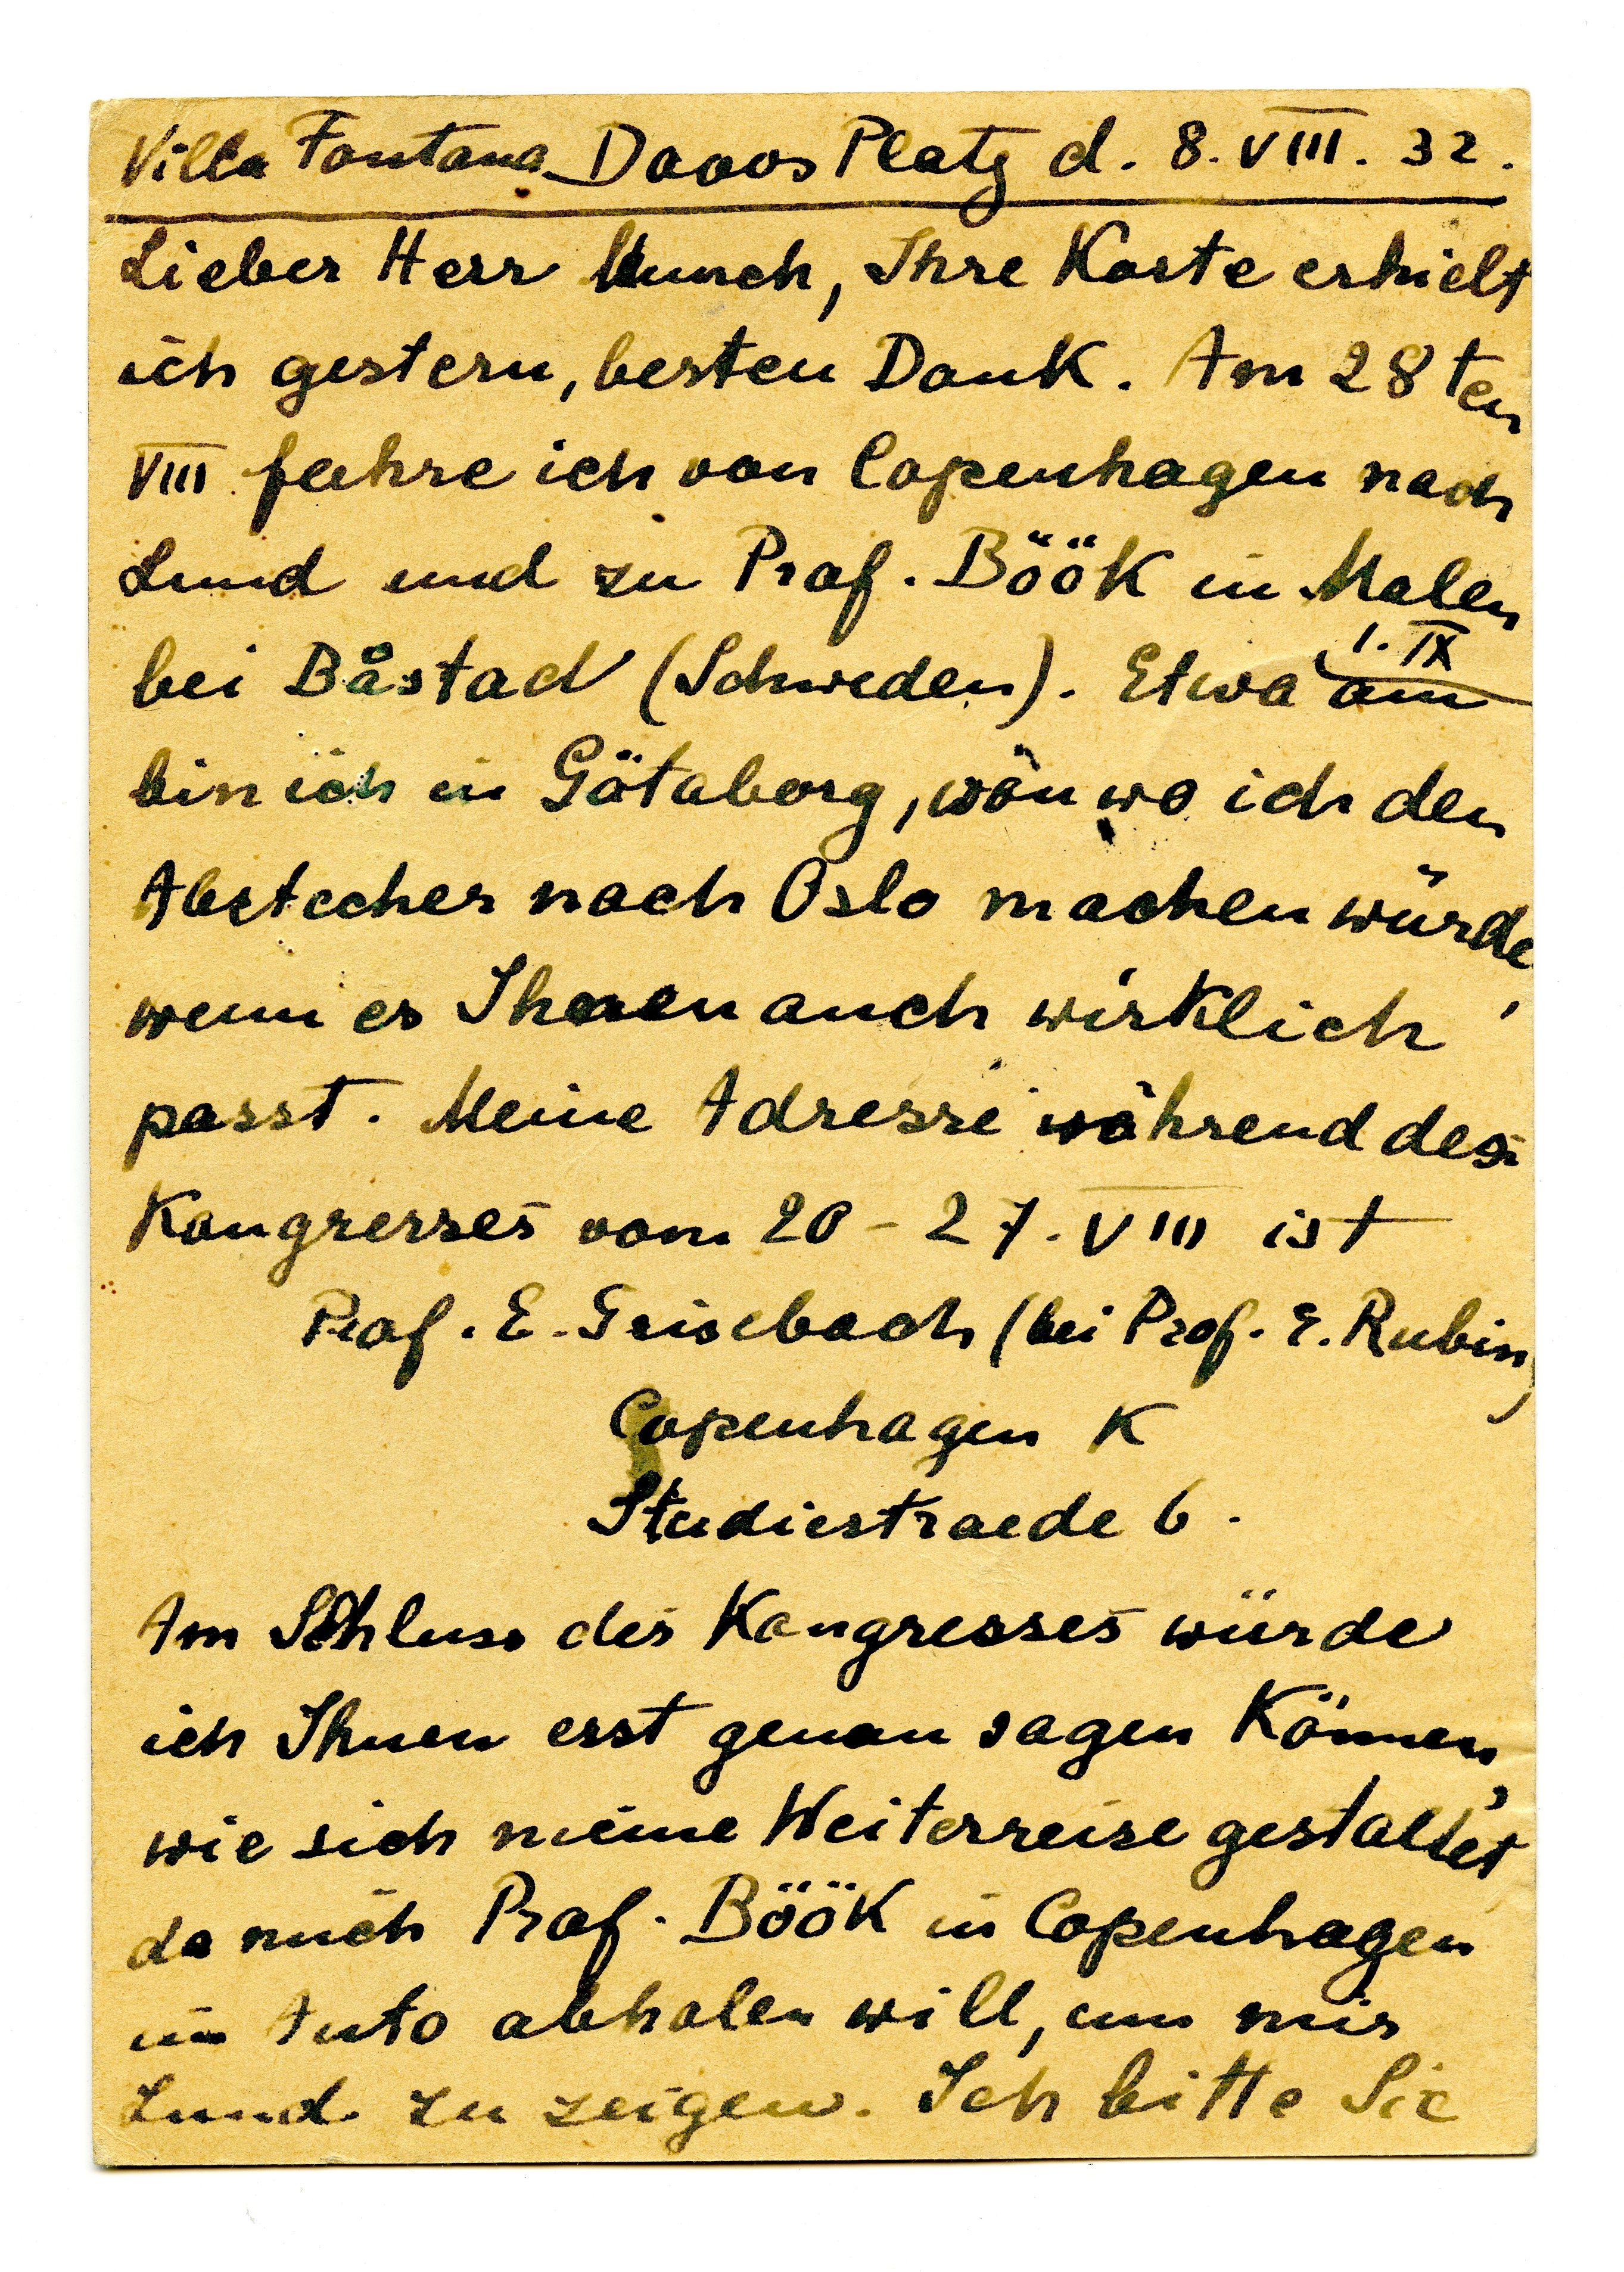 Villa Fontana Davos Platz d. 8. VIII. 32.
Lieber Herr Munch, Ihre Karte erhielt
ich gestern, besten Dank. Am 28ten
VIII. fahre ich von Copenhagen nach
Lund und zu Prof. Böök in Malen
bei Båstad (Schweden). Etwa am 1. IX
bin ich in Götaborg, von wo ich den
Abstecher nach Oslo machen würde,
wenn es Ihnen auch wirklich
passt. Meine Adresse während des
Kongresses vom 20 - 27. VIII ist
Prof. E. Grisebach (bei Prof. E. Rubin)
Copenhagen K
Studiestraede 6.
Am Schluss des Kongresses würde
ich Ihnen erst genau sagen Können,
wie sich meine Weiterreise gestaltet
da mich Prof. Böök in Copenhagen
im Auto abholen will, um mir
Lund zu zeigen. Ich bitte Sie